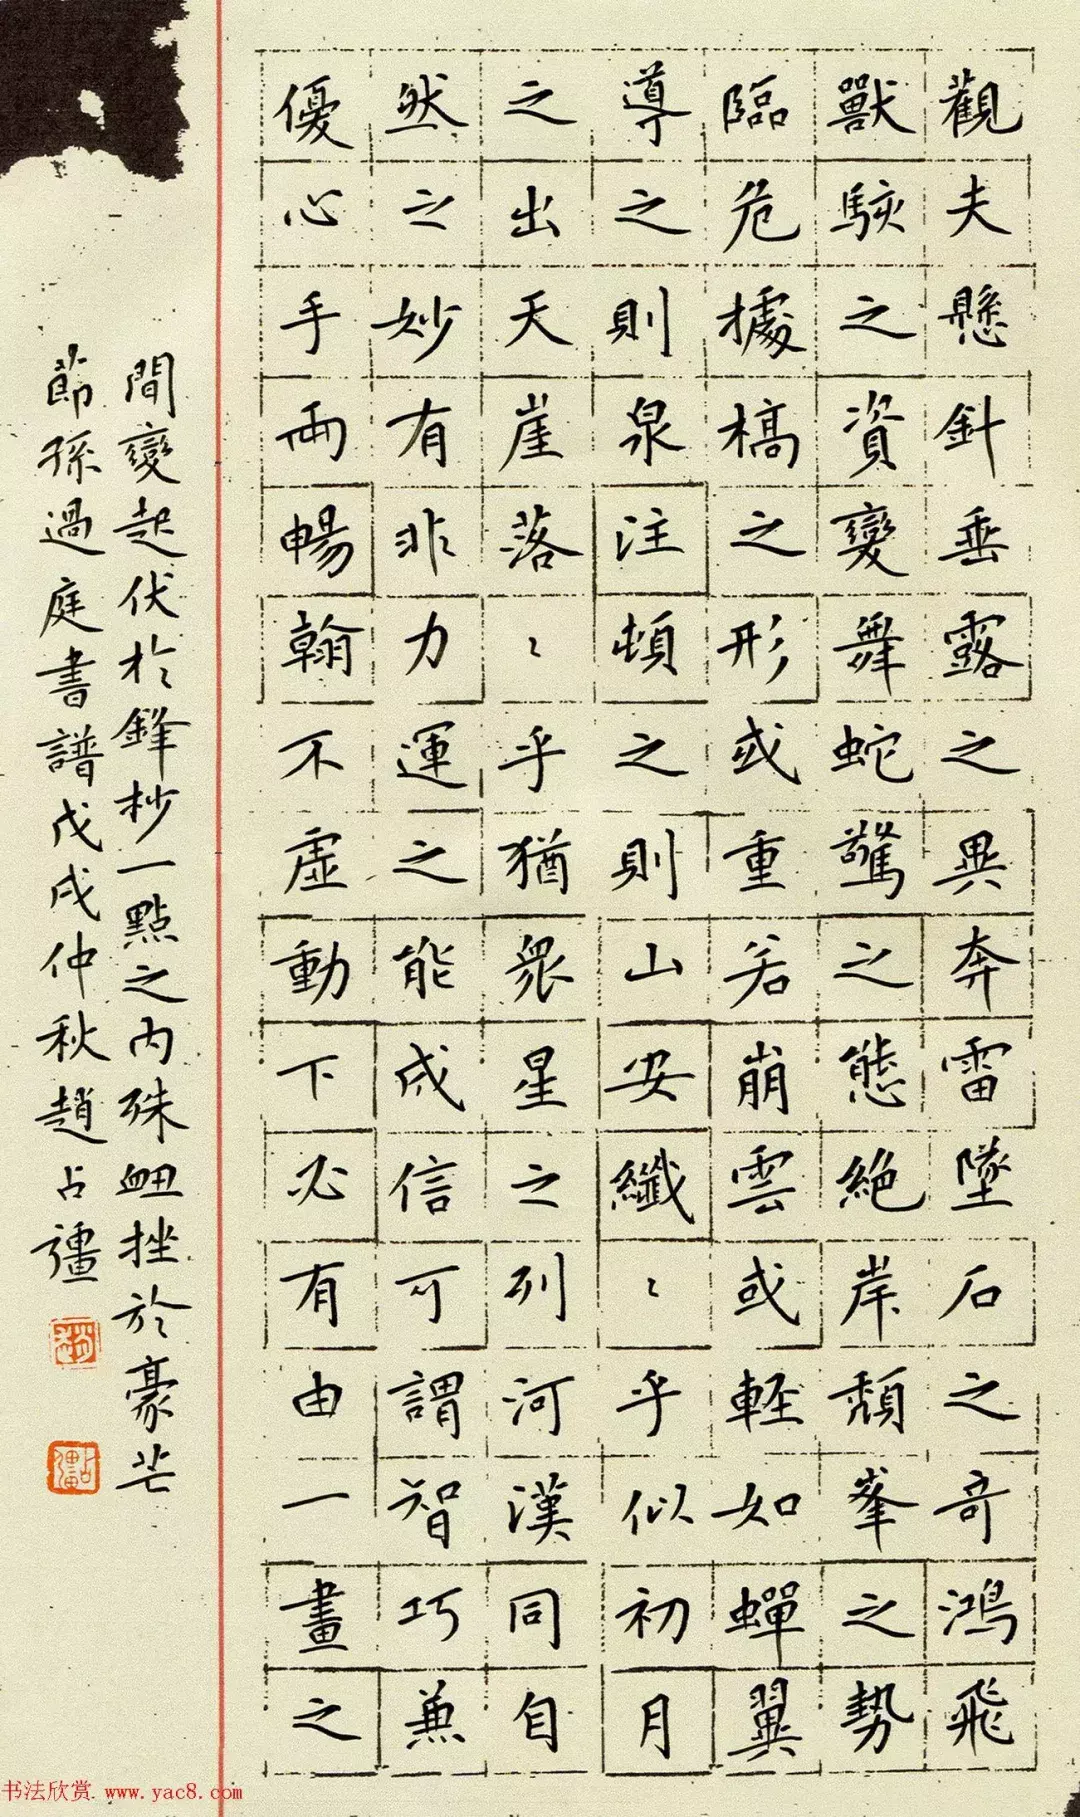 觀夫懸針垂露之異奔雷墜石之奇鴻飛
獸駭之資變舞蛇驚之態絶岸頹峯之勢
臨危據槁之形或重若崩雲或輕如蟬翼
導之則泉注頓之則山安纖〻乎似初月
之出天崖落〻乎猶眾星之列河漢同自
然之妙有非力運之能成信可謂智巧兼
優心手兩暢翰不虛動下必有由一畫之
間變起伏於鋒杪一點之内殊衄挫於豪芒
節孫過庭書譜戊戌仲秋趙占彊
趙
占彊
书法欣赏 www.yac8.com